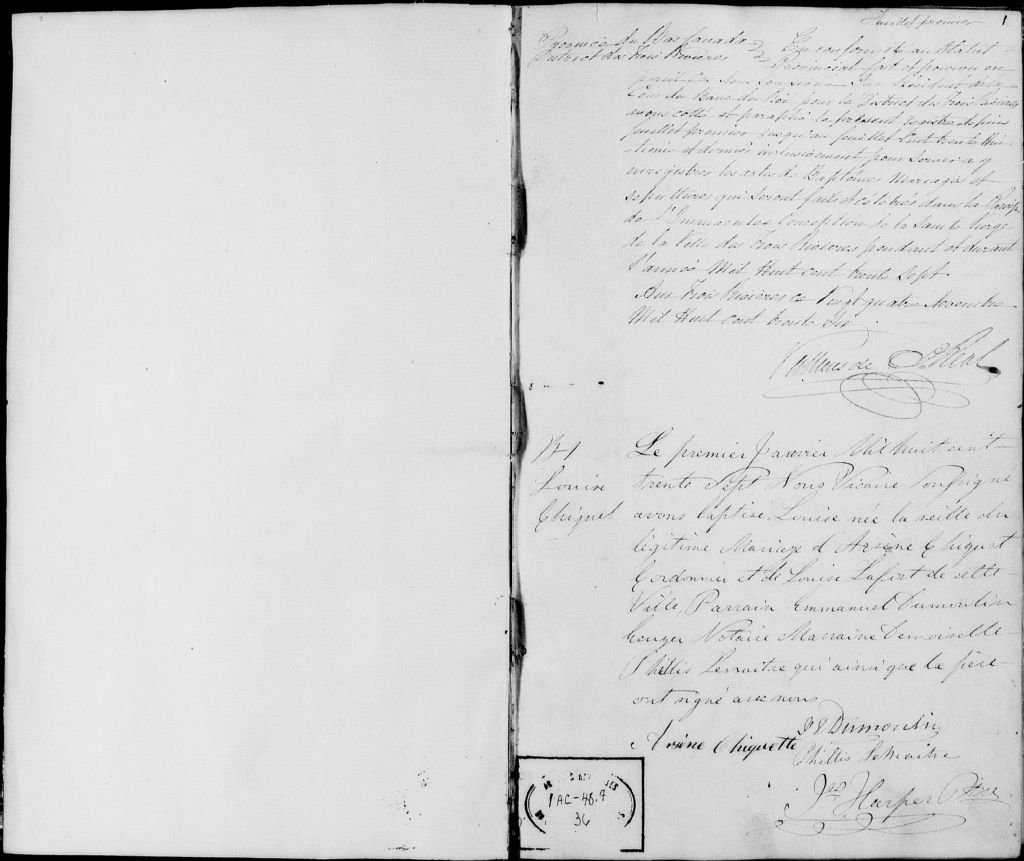 feuillet premier 1
Province du Bas Canada
District des Trois Rivières
En conformité au Statut
Provincial fait et pourvu en
pareil Cas Nous Soussigné Juge Résident de la
Cour du Banc du Roi pour le District des Trois Rivières
avons cotté et paraphé le présent registre depuis
feuillet premier jusqu'au feuillet Cent trente hui-
-tieme et dernier inclusivement pour servir a y
enregistrer les actes de Baptêmes Mariages et
sepultures qui seront faits et célébrés dans la Paroisse
de l'Immaculée Conception de la Sainte Vierge
de la Ville des Trois Rivieres pendant et durant
l'année Mil Huit cent trente Sept
Aux Trois Rivieres ce Vingt quatre Novembre
Mil Huit cent trente Six
Vallieres de St Real
B 1
Louise
Chiquet
Le premier Janvier Mil huit cent
trente Sept Nous Vicaire Soussigné
avons baptisé Louise née la veille du
légitime Mariage d'Arsène Chiquet
Cordonnier et de Louise Lafort de cette
Ville, Parrain Emmanuel Dumoulin
Ecuyer Notaire Marraine Demoiselle
Phillis Lemaitre qui ainsi que le père
ont signé avec nous
Arsène Chiquette
J E Dumoulin
Phillis LeMaitre
Jes Harper Ptre
1AC-48.9
36